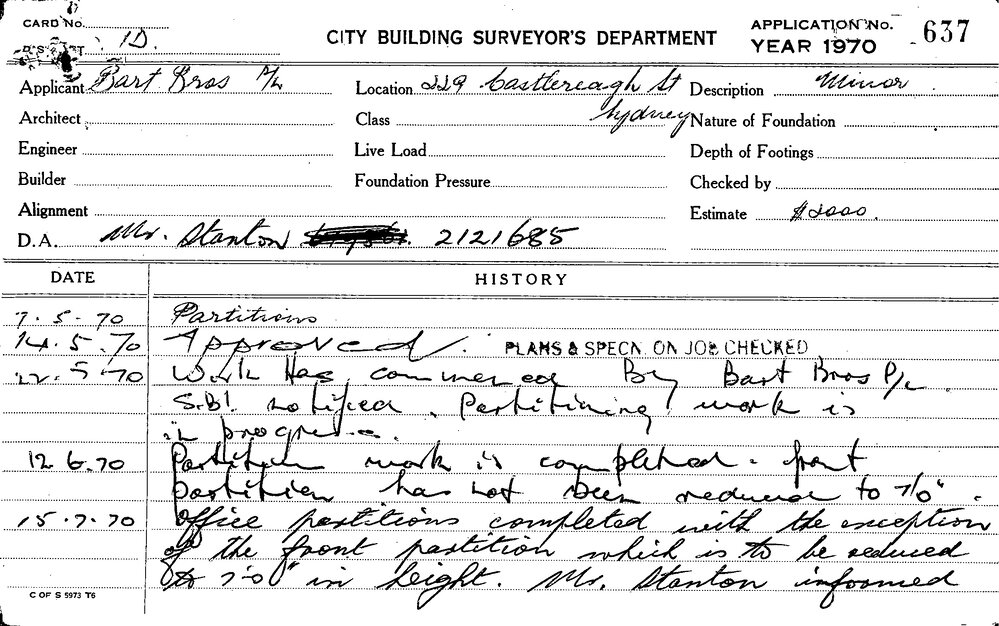 CARD No.
DISTRICT 1D.
CITY BUILDING SURVEYOR'S DEPARTMENT
APPLICATION No. 637
YEAR 1970
Applicant Bart Bros P/L Location 229 Castlereagh St Description Minor
Architect Class Sydney Nature of Foundation
Engineer Live Load Depth of Footings
Builder Foundation Pressure Checked by
Alignment Estimate $2000.
D.A. Mr. Stanton 2121685
DATE HISTORY
7.5.70 Partitions
14.5.70 Approved. PLANS & SPECN. ON JOB CHECKED
22.5.70 Work Has commenced By Bart Bros P/L
S.B.I. notified. Partitining work is
in progress.
12.6.70 Partition work is completed - front
partition has not been reduced to 7'0".
15.7.70 Office partitions completed with the exception
of the front partition which is to be reduced
to 7'-0" in height. Mr. Stanton informed
C OF S 5973 T6